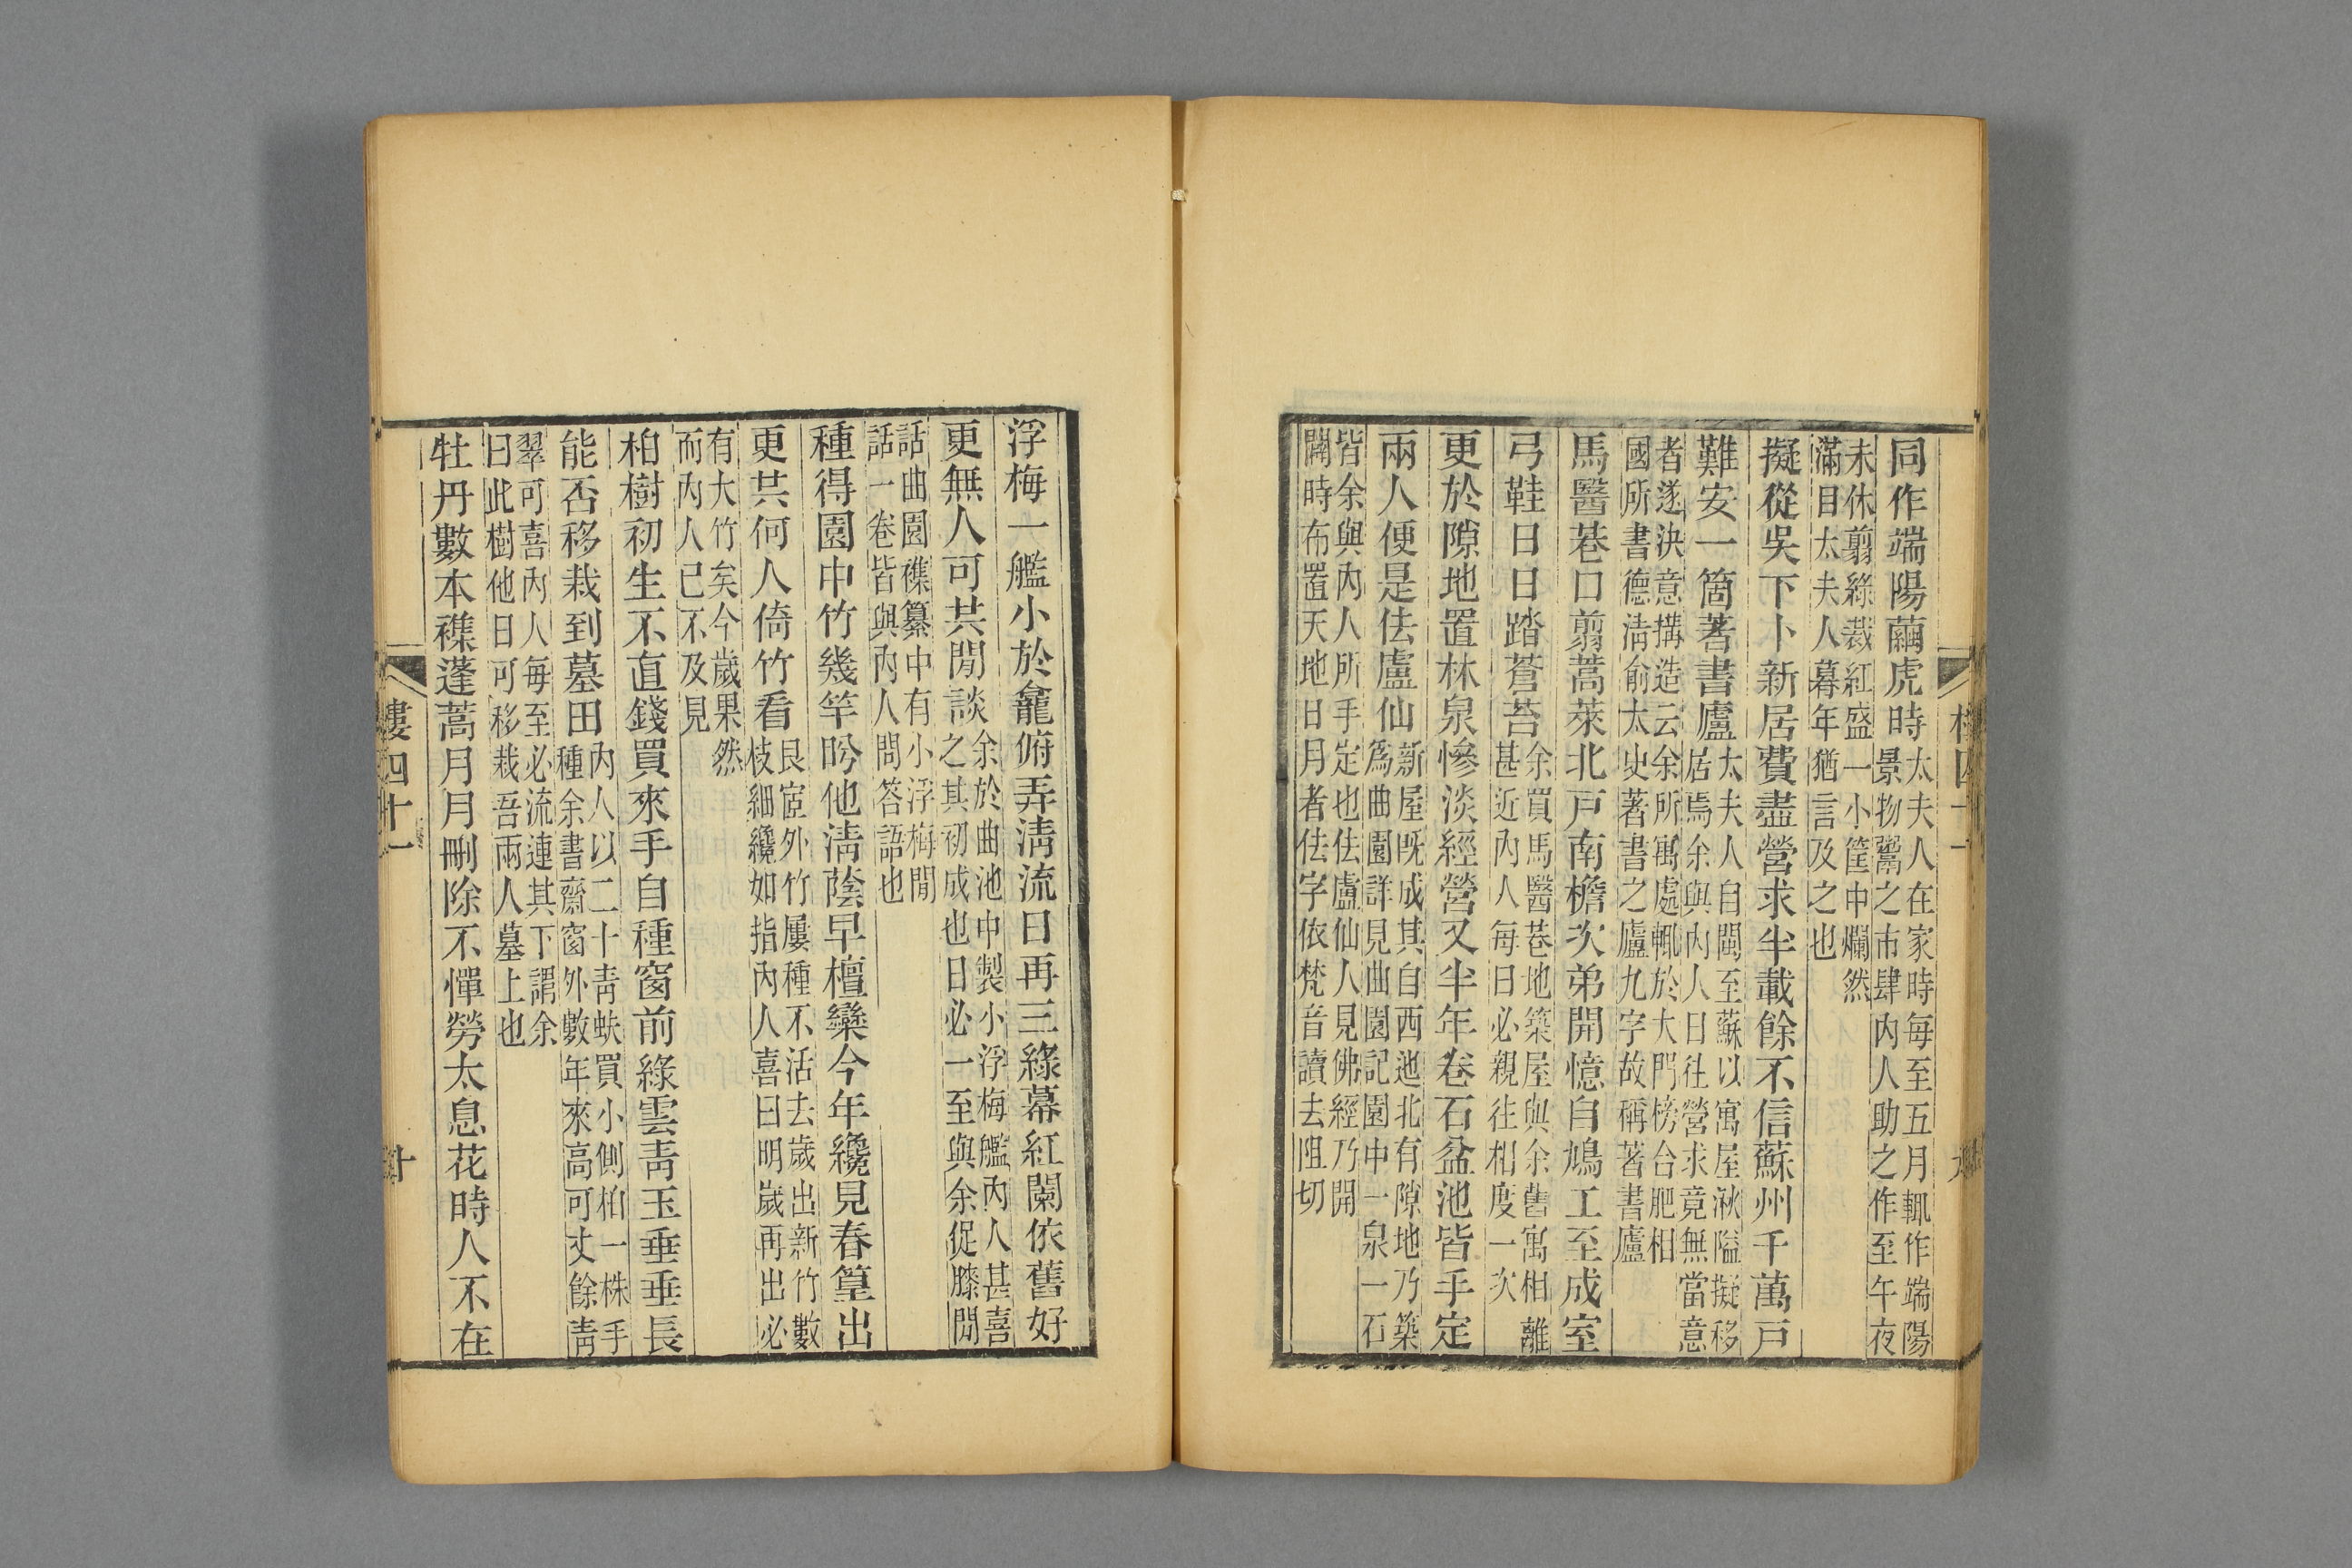 同作端陽繭虎時
太夫人在家時每至五月輒作端陽
景物鬻之市肆內人助之作至午夜
未休翦綠裁紅盛一小筐中爛然
滿目太夫人暮年猶言及之也
擬從吳下卜新居費盡營求半載餘不信蘇州千萬戸
難安一箇著書廬
太夫人自閩至蘇以寓屋湫隘擬移
居焉余與內人日往營求竟無當意
者遂決意搆造云余所寓處輒於大門榜合肥相
國所書德清俞太史著書之廬九字故稱著書廬
馬醫巷口翦蒿萊北戸南檐次弟開憶自鳩工至成室
弓鞋日日踏蒼苔
余買馬醫巷地築屋與余舊寓相離
甚近內人每日必親往相度一次
更於隙地置林泉慘淡經營又半年卷石盆池皆手定
兩人便是佉盧仙
新屋既成其自西迆北有隙地乃築
爲曲園詳見曲園記園中一泉一石
皆余與內人所手定也佉盧仙人見佛經乃開
闢時布置天地日月者佉字依梵音讀去阻切
浮梅一艦小於龕俯弄淸流日再三綠幕紅闌依舊好
更無人可共閒談
余於曲池中製小浮梅艦內人甚喜
之其初成也日必一至與余促膝閒
話曲園襍纂中有小浮梅閒
話一卷皆與內人問答語也
種得園中竹幾竿盼他淸蔭早檀欒今年纔見春篁出
更共何人倚竹看
艮宧外竹屢種不活去歲出新竹數
枝細纔如指內人喜曰明歲再出必
有大竹矣今歲果然
而內人已不及見
柏樹初生不直錢買來手自種窗前綠雲靑玉垂垂長
能否移栽到墓田
內人以二十靑蚨買小側柏一株手
種余書齋窗外數年來高可丈餘靑
翠可喜內人每至必流連其下謂余
曰此樹他日可移栽吾兩人墓上也
牡丹數本襍蓬蒿月月刪除不憚勞太息花時人不在
樓四十一
十